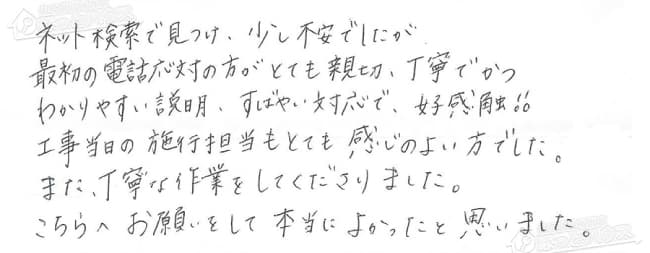 ネット検索で見つけ、少し不安でしたが
最初の電話応対の方がとても親切、丁寧でかつ
わかりやすい説明、すばやい対応で、好感触!!
工事当日の施行担当もとても感じのよい方でした。
また、丁寧な作業をしてくださりました。
こちらへお願いをして本当によかったと思いました。